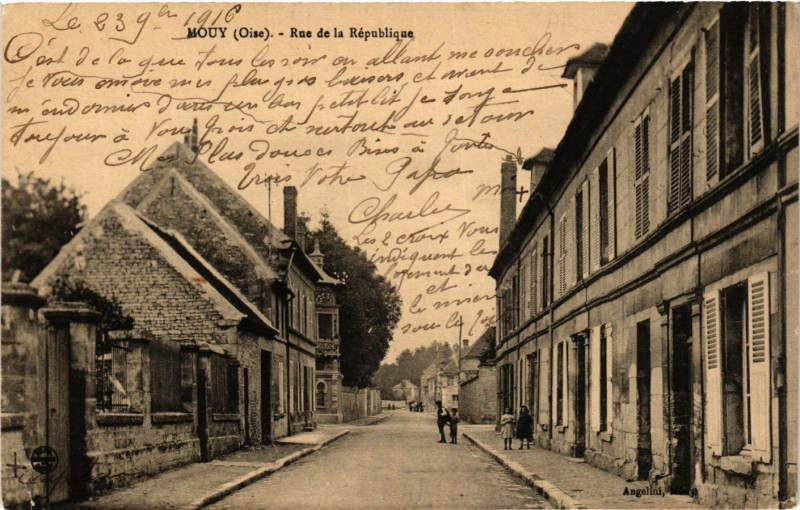 Le 23 9bre 1916
MOUY (Oise). - Rue de la République
C'est de la que tous les soir en allant me coucher
je vous envoie mes plus gros baisers et avant de
m'endormir dans mon bon petit lit je songe
Toujour à Vous trois et surtout au retour
Mes Plus douces Bises à toutes
trois Votre Papa
Charles
Les 2 croix Vous
indiquent les
logement du
et
le mien
sous le
Angelini, Mouy